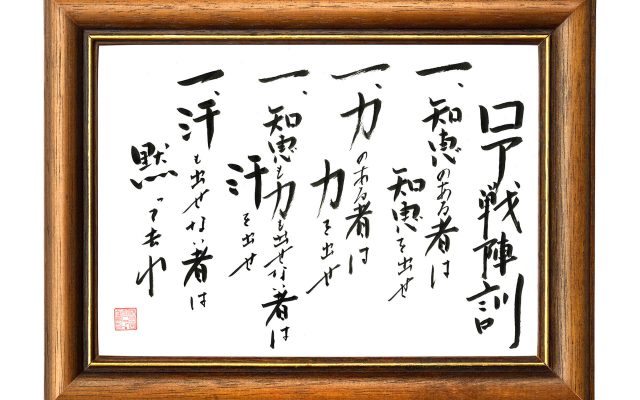 ロア戦陣訓
一、知恵のある者は
知恵を出せ
一、力のある者は
力を出せ
一、知恵も力も出せない者は
汗を出せ
一、汗も出せない者は
黙って去れ